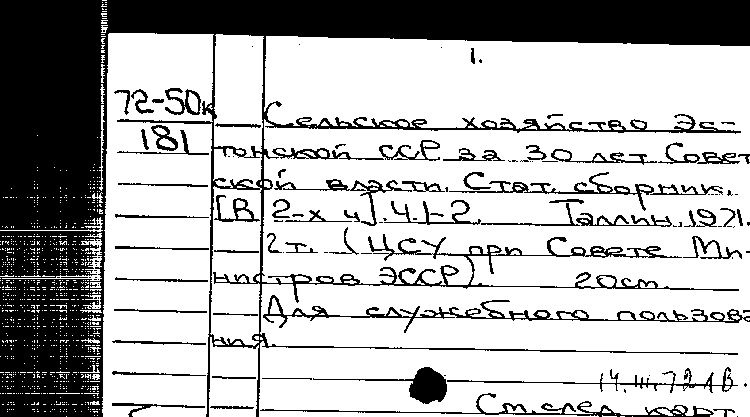 1.
72-50к
181
Сельское хозяйство Эс-
тонской ССР за 30 лет Совет
ской власти. Стат. сборник.
[В 2-х ч]. Ч.1-2. Таллин, 1971.
2т. (ЦСУ при Совете Ми-
нистров ЭССР). 20см.
Для служебного пользова
ния.
14.III.72
См. след. карт.